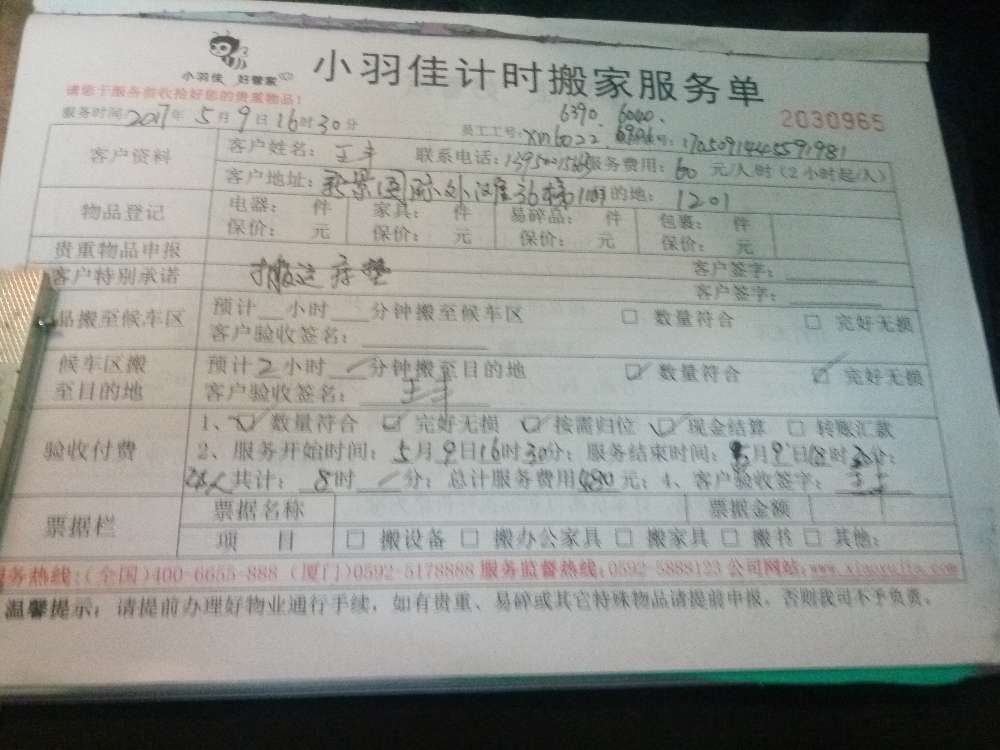 小羽佳 好管家
小羽佳计时搬家服务单
请您于服务前收捡好您的贵重物品！
6390. 6040.
2030965
服务时间：2017年5月9日16时30分
员工工号：xm6022. 17050914445591981
客户资料
客户姓名：王丰 联系电话： 服务费用：60元/人/时（2小时起/人）
客户地址： 的地：1201
物品登记
电器： 件 家具： 件 易碎品： 件 包裹： 件
保价： 元 保价： 元 保价： 元 保价： 元
贵重物品申报
客户签字：
客户特别承诺 搬运床垫
客户签字：
品搬至候车区
预计 小时 分钟搬至候车区 □ 数量符合 □ 完好无损
客户验收签名：
候车区搬至目的地
预计2小时 分钟搬至目的地 ☑ 数量符合 ☑ 完好无损
客户验收签名：王丰
验收付费
1、☑ 数量符合 ☑ 完好无损 ☑ 按需归位 ☑ 现金结算 □ 转账汇款
2、服务开始时间：5月9日16时30分；服务结束时间：5月9日18时30分；
共计：8时 分；总计服务费用480元；4、客户验收签字：王丰
票据栏
票据名称 票据金额
项 目 □ 搬设备 □ 搬办公家具 □ 搬家具 □ 搬书 □ 其他：
务热线：（全国）400-6655-888（厦门）0592-5178888 服务监督热线：0592-5888123 公司网站：www.xiaoyujia.com
温馨提示：请提前办理好物业通行手续，如有贵重、易碎或其它特殊物品请提前申报，否则我司不予负责。